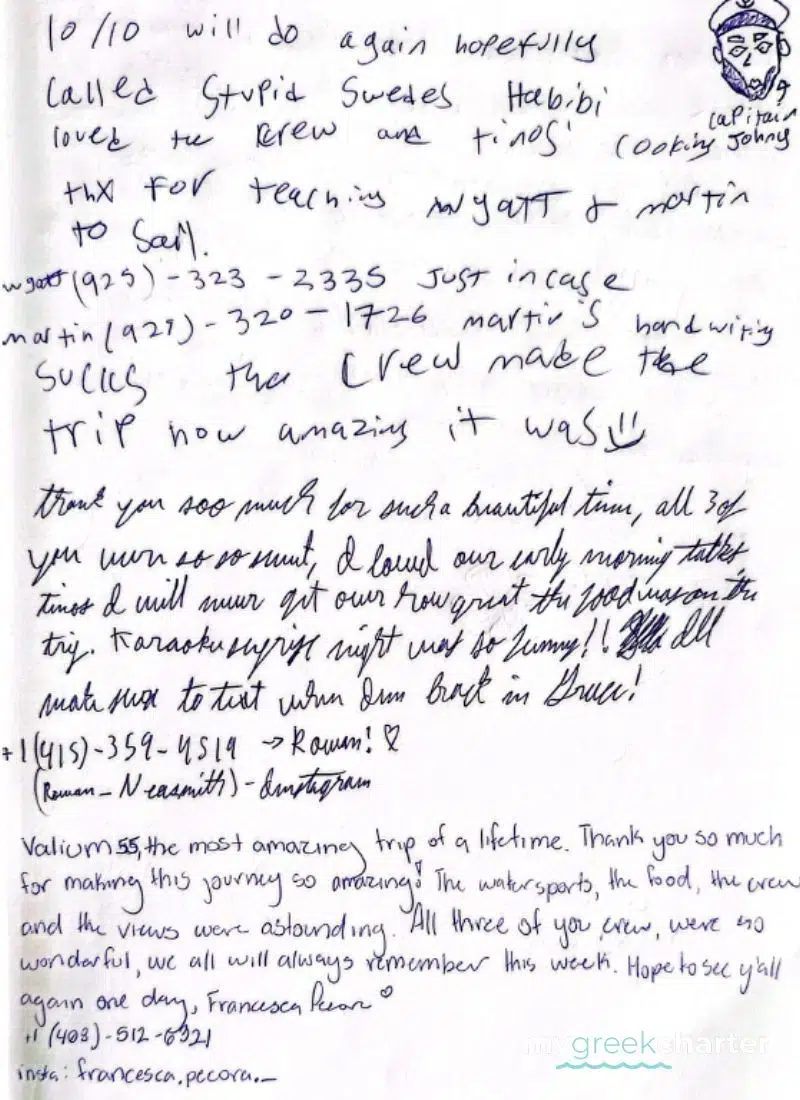 10/10 will do again hopefully
Called Stupid Swedes Habibi
loved the crew and tinos' cooking
Capitain Johny
thx For teaching Wyatt & martin
to Sail.
wyatt (925)-323-2335 Just incase
martin (925)-320-1726 martin's handwriting
sucks the Crew made the
trip how amazing it was
thank you soo much for such a beautiful time, all 3 of
you were so so sweet, I loved our early morning talks
tinos I will never get over how great the food was on the
trip. Karaoke surprise night was so funny!! Ill
make sure to text when I'm back in Greece!
+1(415)-359-4519 → Rowan! ♡
(Rowan_Neasmith)-Instagram
Valium55, the most amazing trip of a lifetime. Thank you so much
for making this journey so amazing! The watersports, the food, the crew
and the views were astounding. All three of you crew, were so
wonderful, we all will always remember this week. Hope to see y'all
again one day, Francesca ♡
+1 (403)-512-6921
insta: francesca.pecora._
mygreekcharter